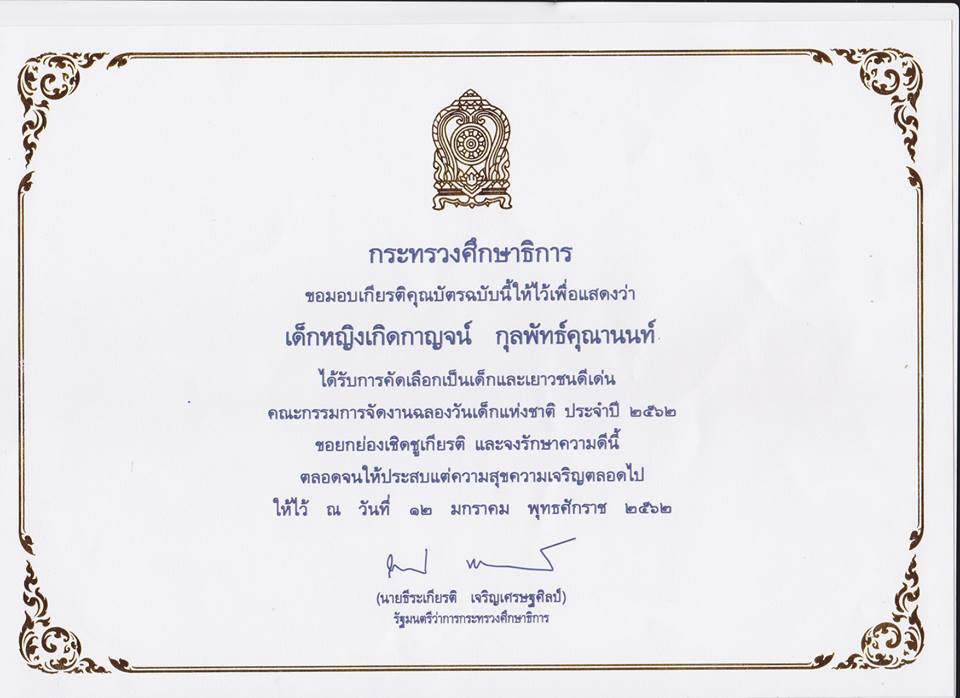 กระทรวงศึกษาธิการ
ขอมอบเกียรติคุณบัตรฉบับนี้ให้ไว้เพื่อแสดงว่า
เด็กหญิงเกิดกาญจน์ กุลพัทธ์คุณานนท์
ได้รับการคัดเลือกเป็นเด็กและเยาวชนดีเด่น
คณะกรรมการจัดงานฉลองวันเด็กแห่งชาติ ประจำปี ๒๕๖๒
ขอยกย่องเชิดชูเกียรติ และจงรักษาความดีนี้
ตลอดจนให้ประสบแต่ความสุขความเจริญตลอดไป
ให้ไว้ ณ วันที่ ๑๒ มกราคม พุทธศักราช ๒๕๖๒
(นายธีระเกียรติ เจริญเศรษฐศิลป์)
รัฐมนตรีว่าการกระทรวงศึกษาธิการ